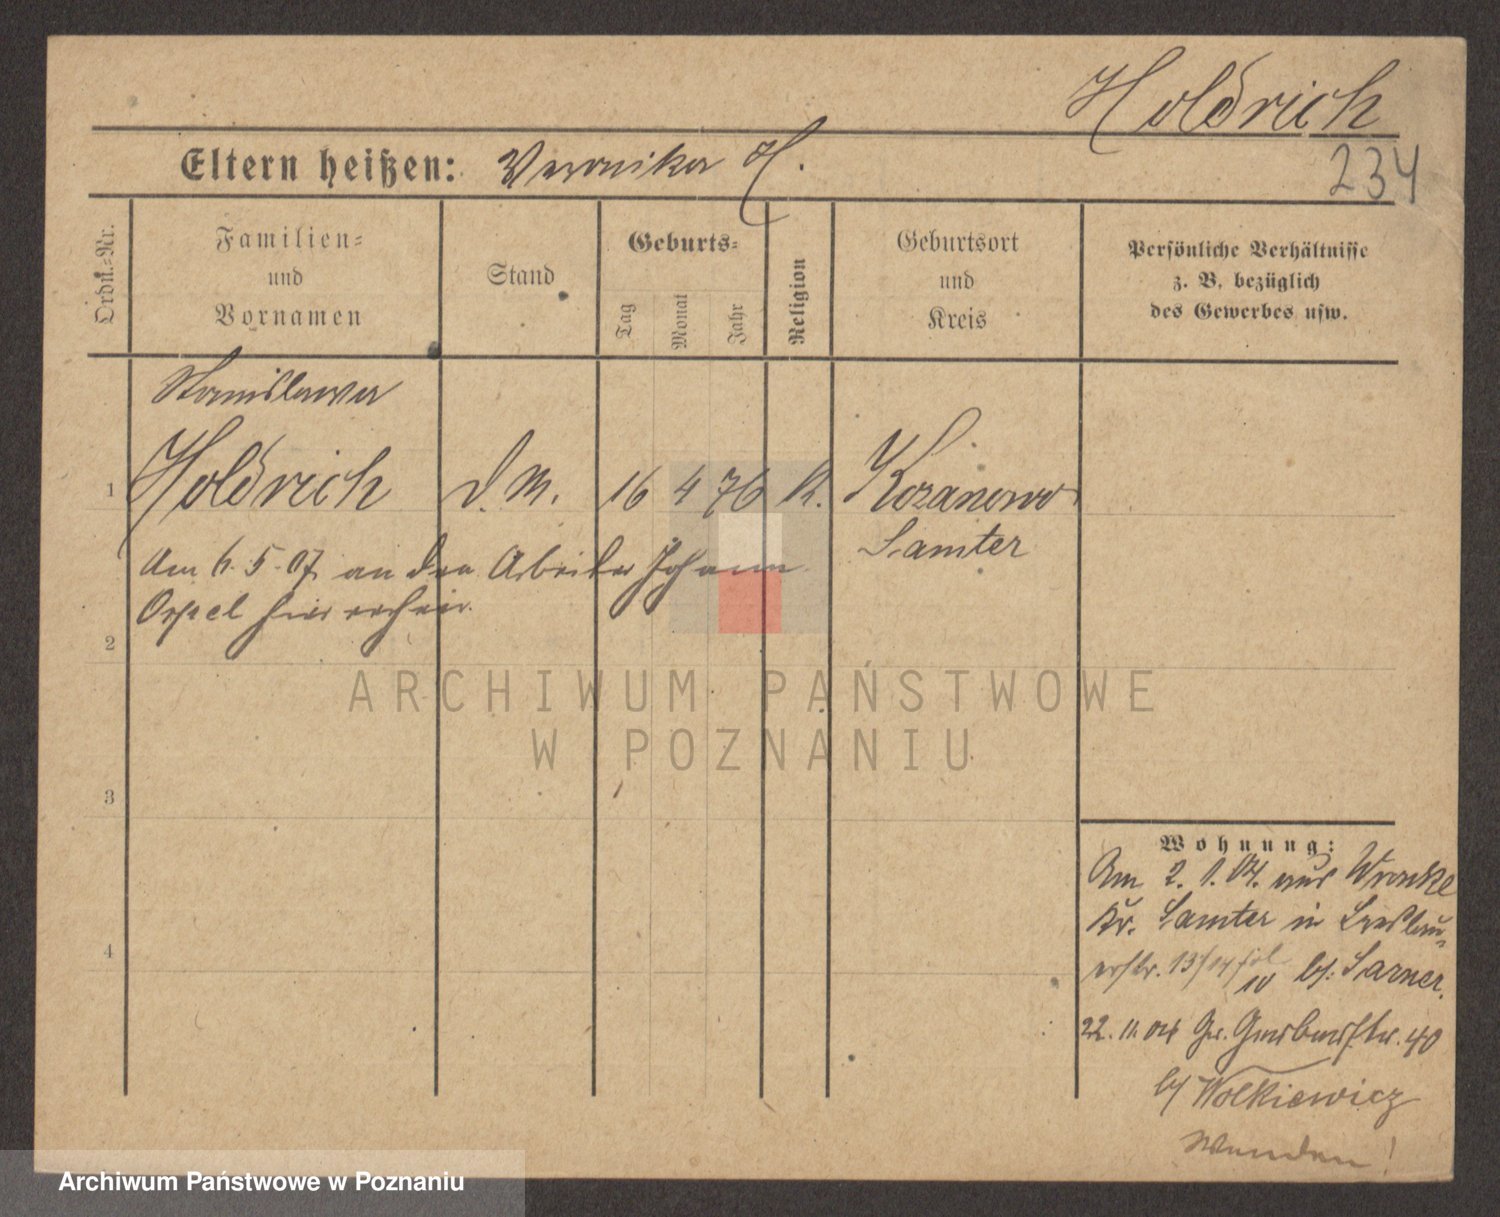 Holdrich
Eltern heißen: Veronika H.
234
Ordn.-Nr.
Familien-
und
Vornamen
Stand
Geburts-
Tag
Monat
Jahr
Religion
Geburtsort
und
Kreis
Persönliche Verhältnisse
z. B. bezüglich
des Gewerbes usw.
Stanislawa
1 Holdrich d. M. 16 4 76 K. Kozanowo
Samter
Am 6. 5. 07 an den Arbeiter Johann
hier verheir.
2
3
4
Wohnung:
Am 2. 1. 04. aus Wronke
Kr. Samter in Breslau-
erstr. 13/14 bs: Sarner.
22. 11. 04 Gr. Gerberstr. 40
bs Wolkiewicz
ARCHIWUM PAŃSTWOWE
W POZNANIU
Archiwum Państwowe w Poznaniu